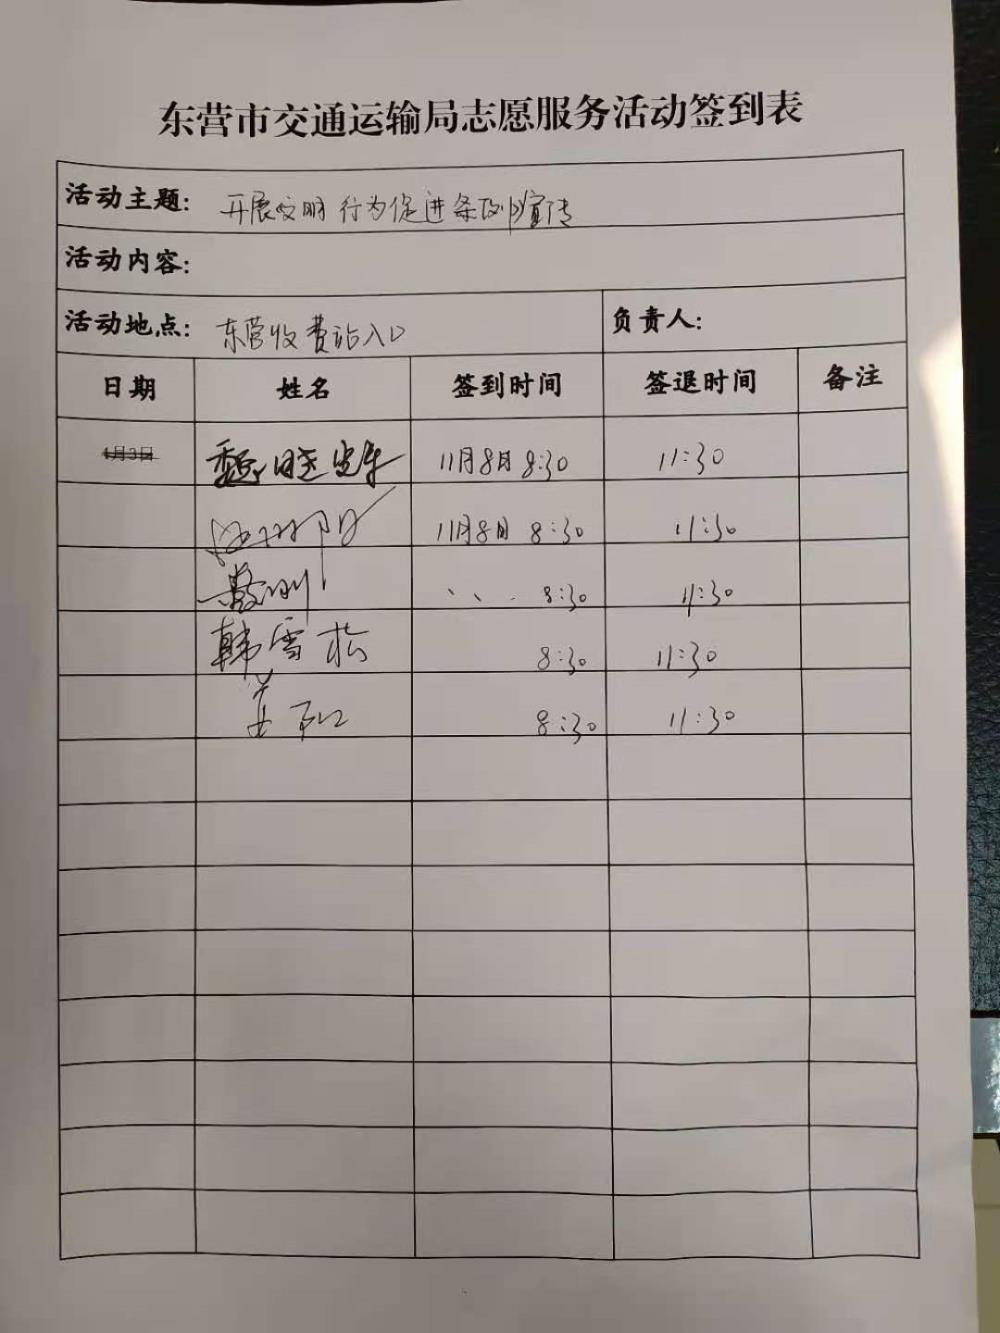 东营市交通运输局志愿服务活动签到表
活动主题: 开展文明行为促进条例宣传
活动内容:
活动地点: 东营收费站入口 负责人:
日期 姓名 签到时间 签退时间 备注
4月3日 魏晓 11月8日 8:30 11:30
11月8日 8:30 11:30
8:30 11:30
韩雪松 8:30 11:30
8:30 11:30